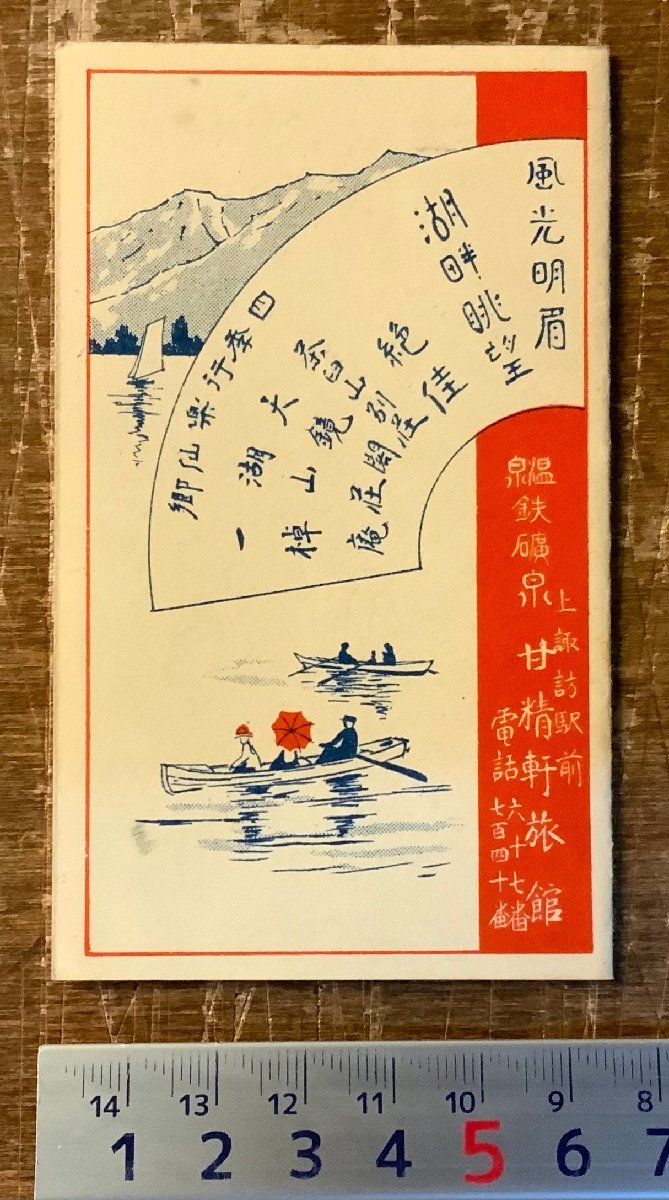 風光明眉
湖畔眺望
絶佳
茶臼山別荘
天鏡閣
湖山荘
一棹庵
四季行楽仙郷
上諏訪駅前
温泉
鉄礦泉
甘精軒旅館
電話
六十七番
七百四十番
14 13 12 11 10 9 8
1 2 3 4 5 6 7